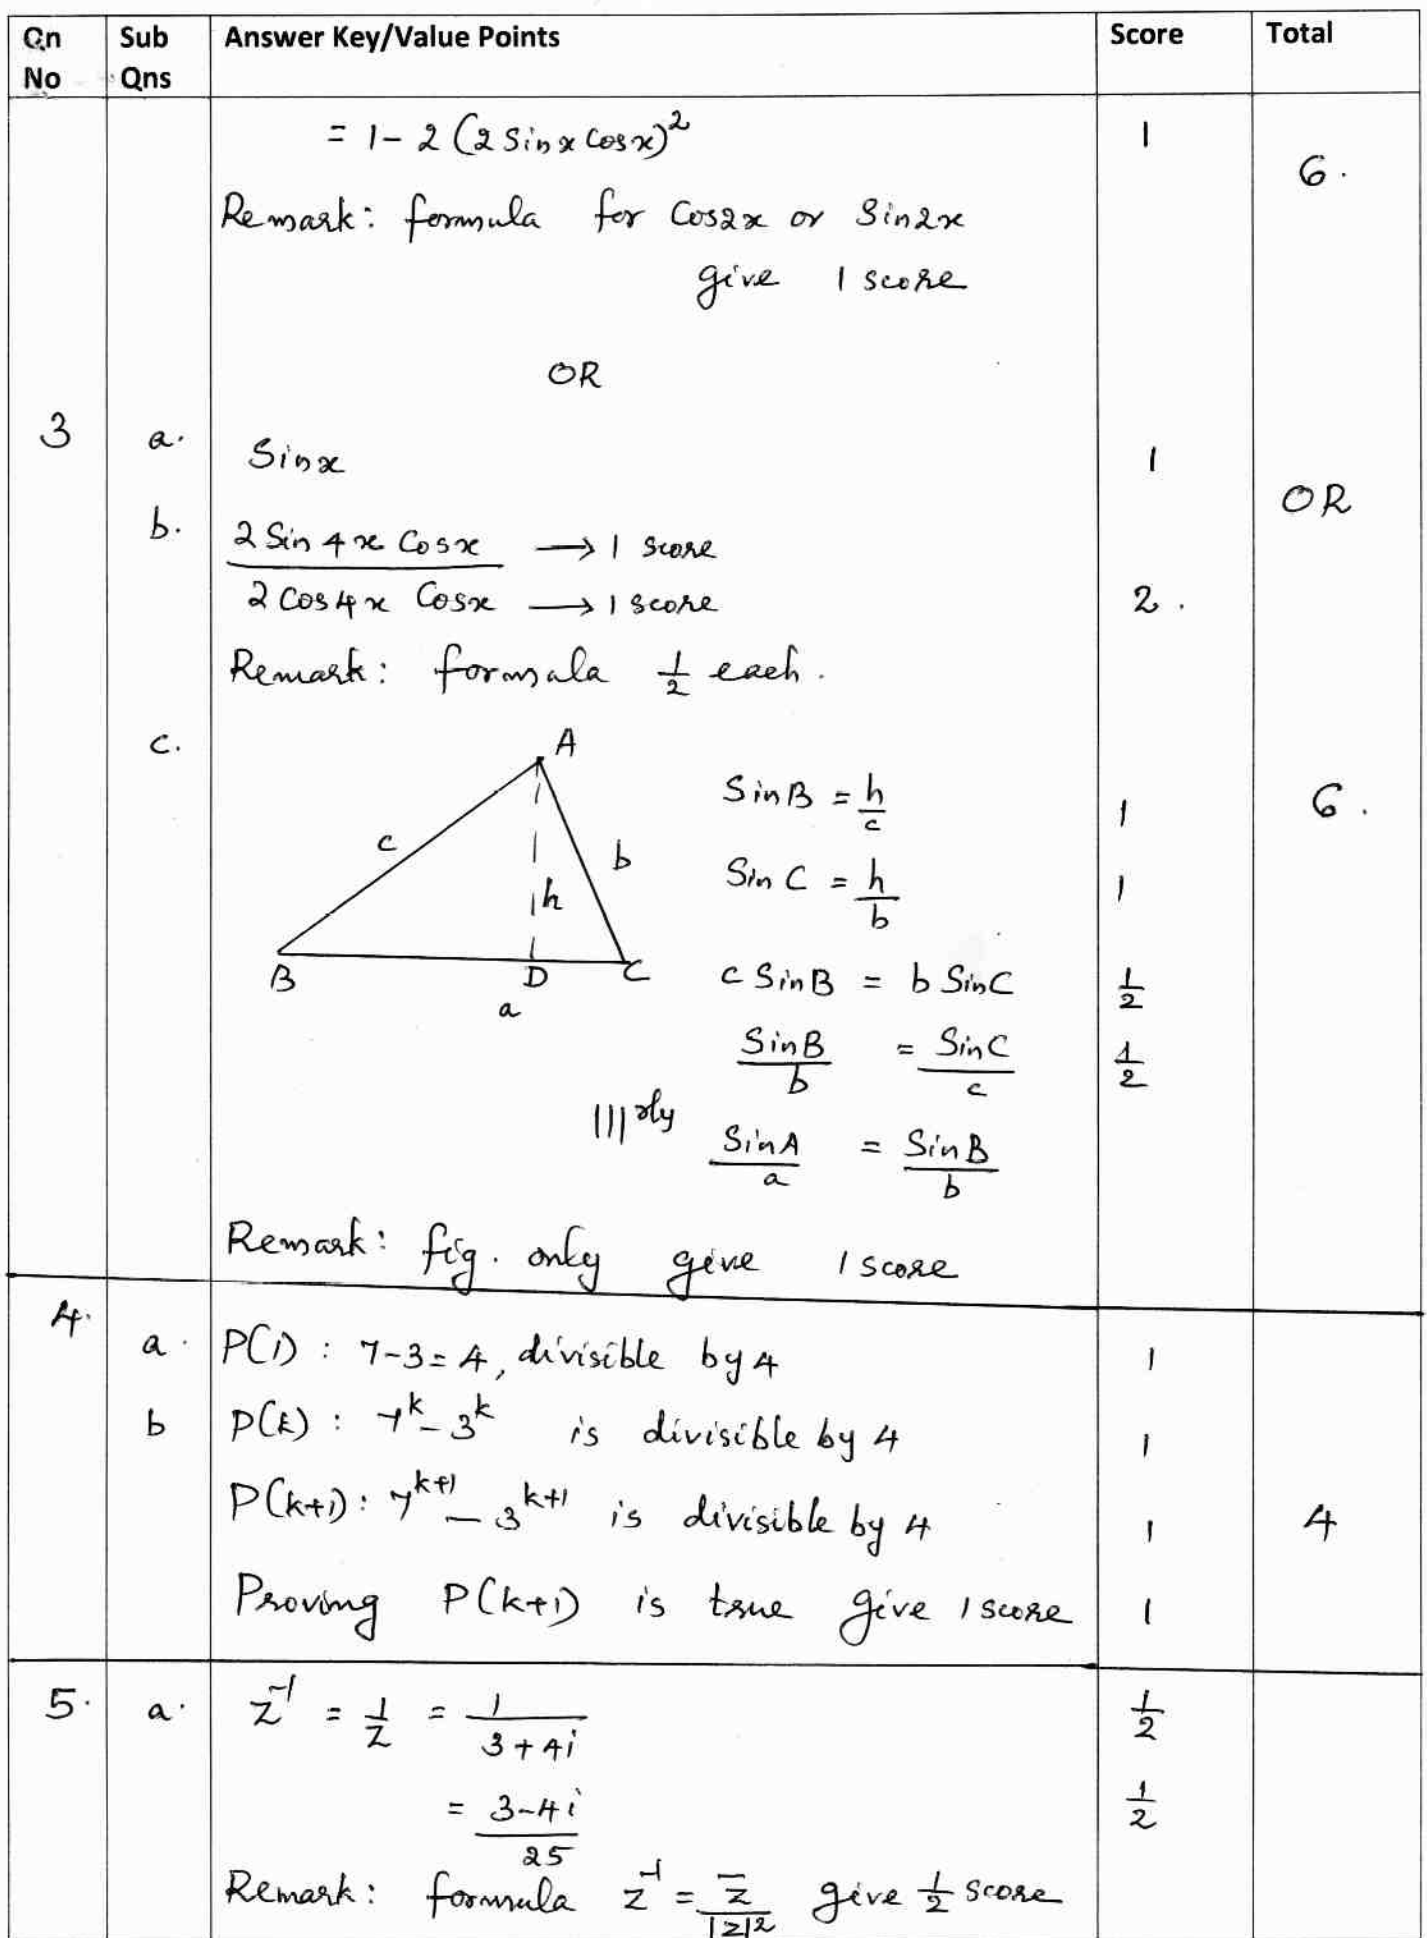 Qn No | Sub Qns | Answer Key/Value Points | Score | Total
= 1 - 2 (2 Sinx Cosx)² | 1 | 6.
Remark: formula for Cos2x or Sin2x
give 1 score
OR
3 | a. | Sinx | 1
OR
b. | 2 Sin 4x Cosx → 1 score
2 Cos4x Cosx → 1 score | 2.
Remark: formula 1/2 each.
c. | A
SinB = h/c | 1 | 6.
c b
Sin C = h/b | 1
h
B D C
c SinB = b SinC | 1/2
a
SinB/b = SinC/c | 1/2
|||rly SinA/a = SinB/b
Remark: fig. only give 1 score
4. | a. | P(1) : 7-3 = 4, divisible by 4 | 1
b | P(k) : 7^k - 3^k is divisible by 4 | 1
P(k+1) : 7^(k+1) - 3^(k+1) is divisible by 4 | 1 | 4
Proving P(k+1) is true give 1 score | 1
5. | a. | z⁻¹ = 1/z = 1/(3+4i) | 1/2
= (3-4i)/25 | 1/2
Remark: formula z⁻¹ = z̄/|z|² give 1/2 score